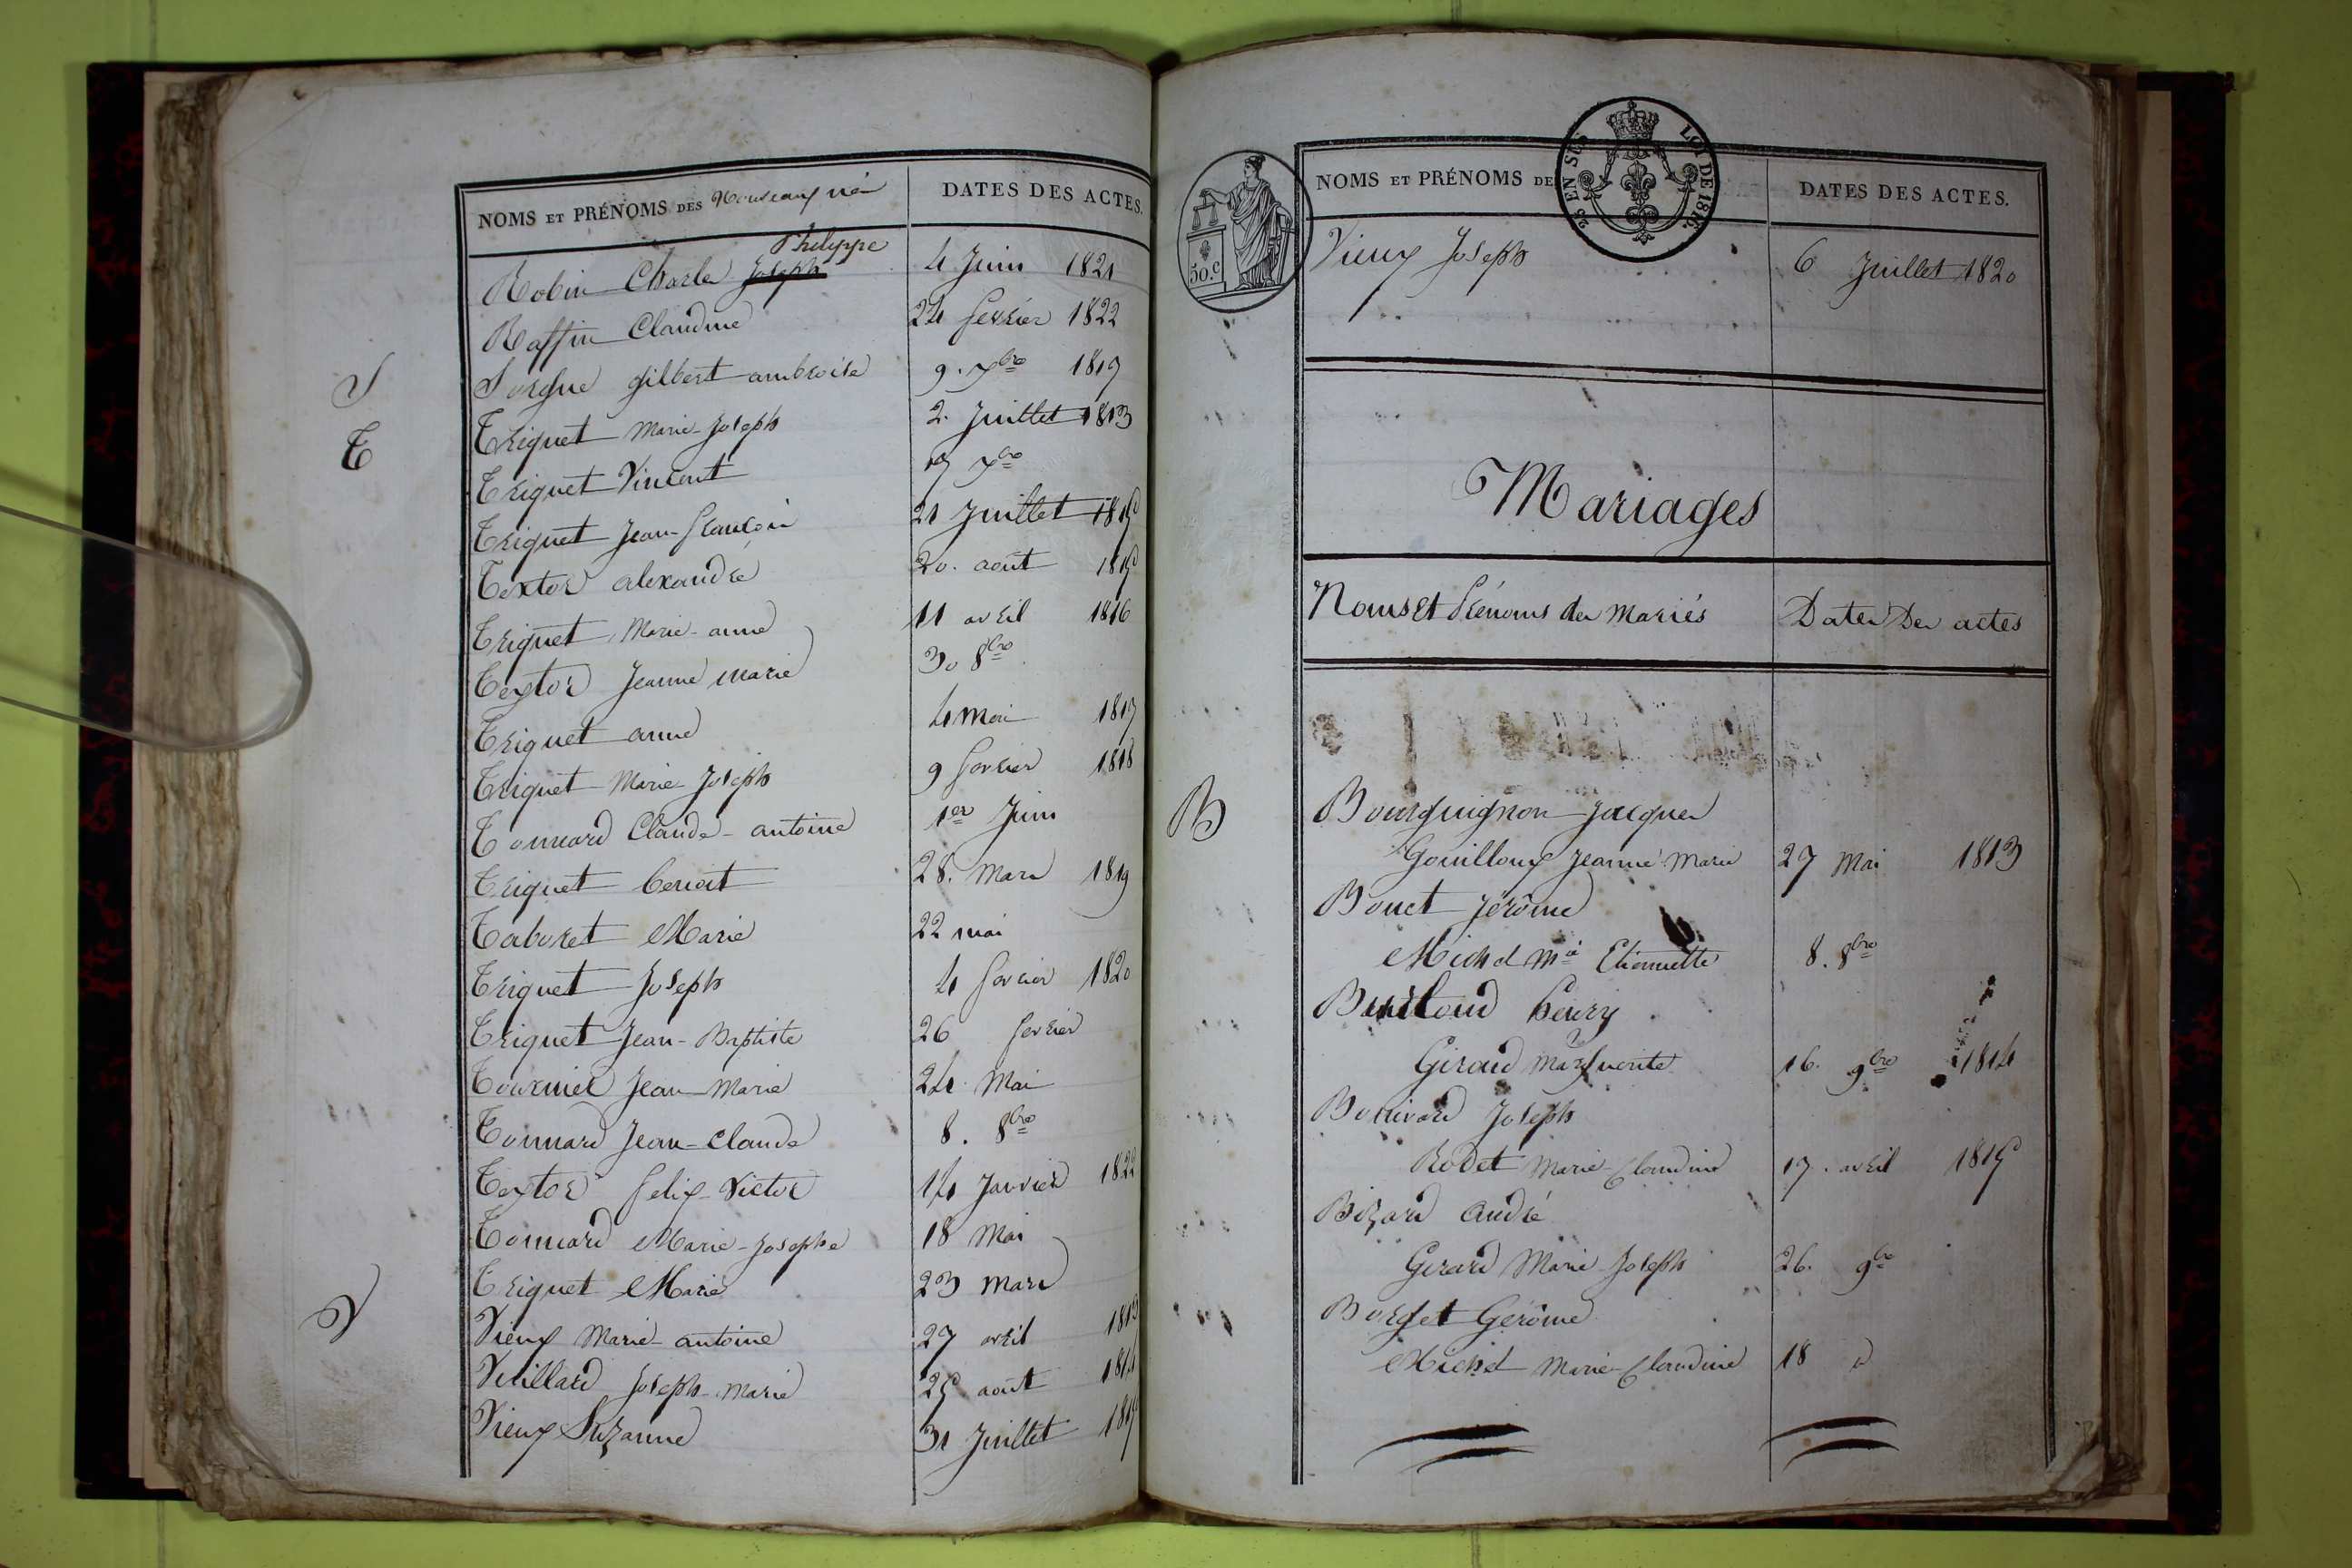 NOMS ET PRÉNOMS DES Nouveaux nés DATES DES ACTES.
Philippe
Robin Charle Joseph 4 Juin 1821
Raffin Claudine 24 fevrier 1822
S Sorgue gilbert ambroise 9. 7bre 1819
T Triquet Marie-Joseph 2. Juillet 1813
Triquet Vincent 19 7bre
Triquet Jean-francois 21 Juillet 1815
Textor alexandre 20. août 1815
Triquet Marie-anne 11 avril 1816
Textor Jeanne marie 30 8bre
Triquet anne 4 Mai 1817
Triquet Marie Joseph 9 fevrier 1818
Tonnard Claude-antoine 1er Juin
Triquet benoit 28. Mars 1819
Taboret Marie 22 mai
Triquet Joseph 4 fevrier 1820
Triquet Jean-Baptiste 26 fevrier
Tournier Jean-Marie 24 Mai
Tonnard Jean-Claude 8. 8bre
Textor felix-Victor 14 Janvier 1822
Tonnard Marie-Josephe 18 Mai
Triquet Marie 23 Mars
V Vieux Marie-antoine 27 avril 1813
Vuillard Joseph-Marie 25 août 1814
Vieux Suzanne 31 Juillet 1815
NOMS ET PRÉNOMS DE DATES DES ACTES.
25 EN SUS LOI DE 1816.
50.C
Vieux Joseph 6 Juillet 1820
Mariages
Noms et Prénoms des Mariés Dates Des actes
B Bourguignon Jacques
Gouilloux Jeanne Marie 27 Mai 1813
Bouet Jérôme
Michel Mie Etiennette 8. 8bre
henry
Giraud Marguerite 16. 9bre 1814
Bonivard Joseph
Rodet Marie-Claudine 17. avril 1815
Bizard André
Girard Marie Joseph 26. 9bre
Borget Gerôme
Michel Marie-Claudine 18 d